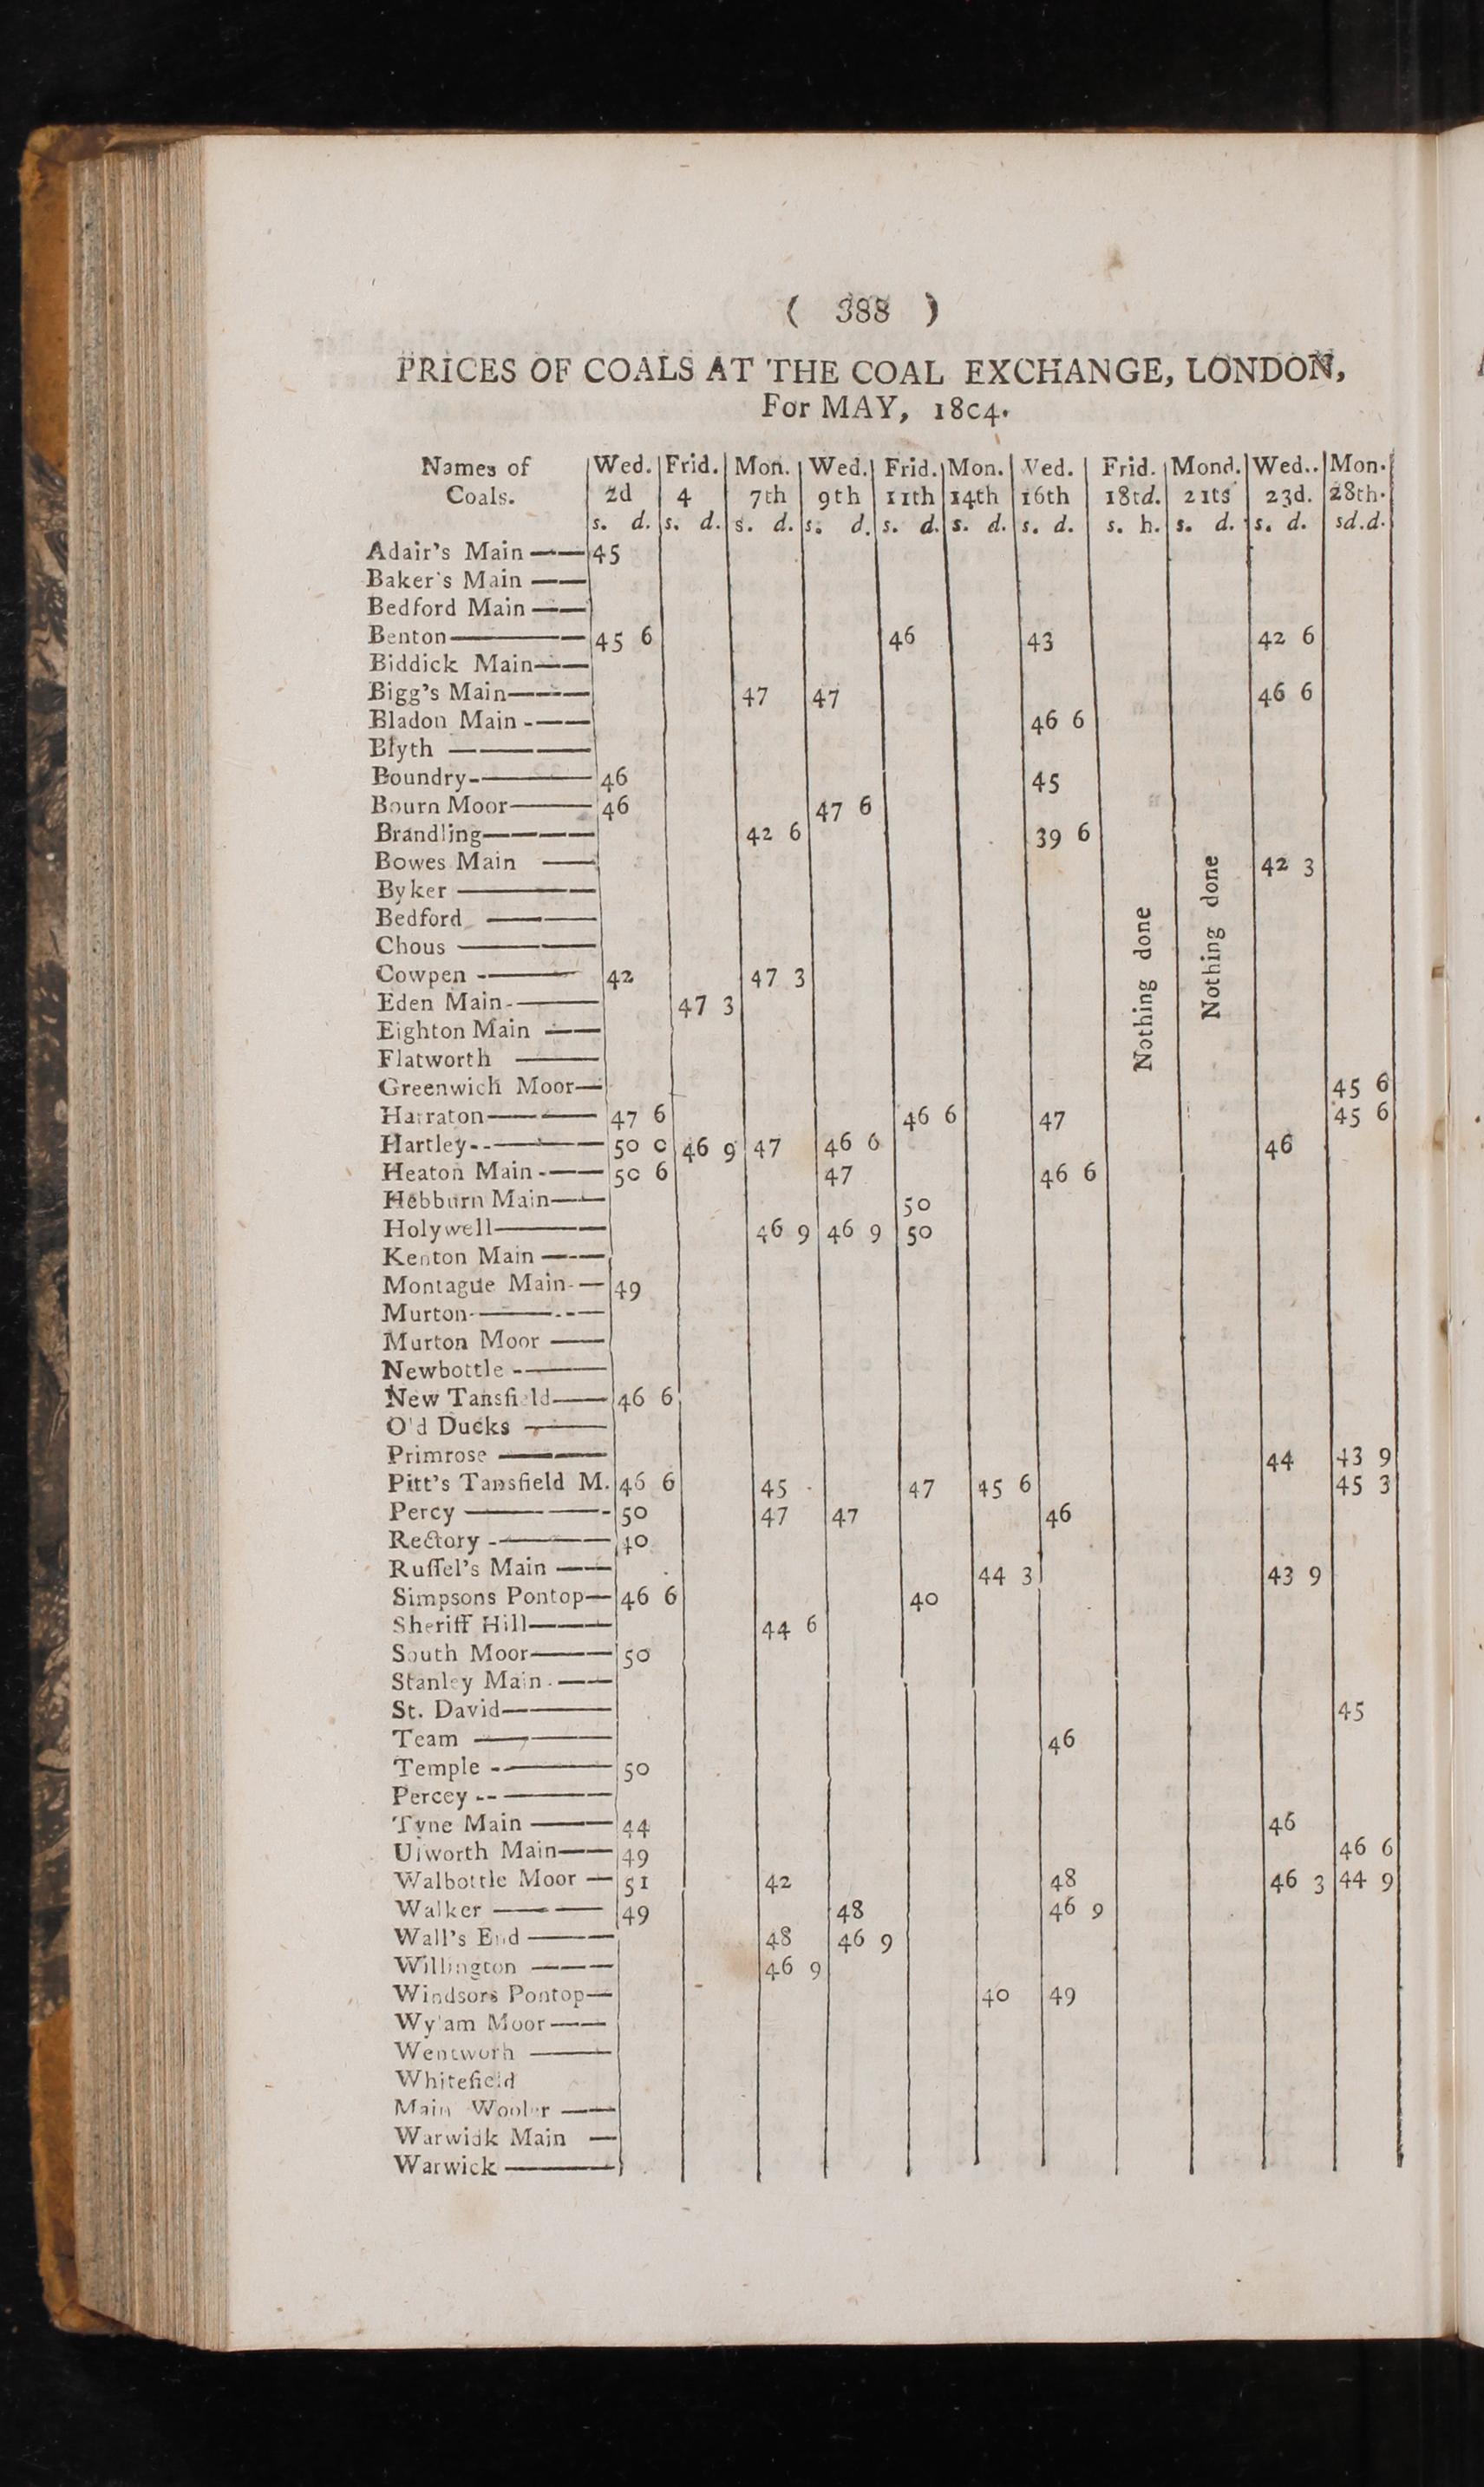 ( 388 )
PRICES OF COALS AT THE COAL EXCHANGE, LONDON,
For MAY, 18c4.
Names of Wed. Frid. Mon. Wed. Frid. Mon. Ved. Frid. Mond. Wed.. Mon.
Coals. 2d 4 7th 9th 11th 14th 16th 18td. 21ts 23d. 28th.
s. d. s. d. s. d. s. d. s. d. s. d. s. d. s. h. s. d. s. d. sd.d.
Adair's Main 45
Baker's Main
Bedford Main
Benton 45 6 46 43 42 6
Biddick Main
Bigg's Main 47 47 46 6
Bladon Main 46 6
Blyth
Boundry 46 45
Bourn Moor 46 47 6
Brandling 42 6 39 6
Bowes Main 42 3
Byker
Bedford
Chous
Cowpen 42 47 3
Eden Main 47 3
Eighton Main
Flatworth
Nothing done
Nothing done
Greenwich Moor 45 6
Harraton 47 6 46 6 47 45 6
Hartley 50 0 46 9 47 46 6 46
Heaton Main 5c 6 47 46 6
Hebburn Main 50
Holywell 46 9 46 9 50
Kenton Main
Montague Main 49
Murton
Murton Moor
Newbottle
New Tansfield 46 6
O'd Ducks
Primrose 44 43 9
Pitt's Tansfield M. 46 6 45 47 45 6 45 3
Percy 50 47 47 46
Rectory 40
Ruſſel's Main 44 3 43 9
Simpsons Pontop 46 6 40
Sheriff Hill 44 6
South Moor 50
Stanley Main
St. David 45
Team 46
Temple 50
Percey
Tyne Main 44 46
Usworth Main 49 46 6
Walbottle Moor 51 42 48 46 3 44 9
Walker 49 48 46 9
Wall's End 48 46 9
Willington 46 9
Windsors Pontop 40 49
Wy'am Moor
Wentworh
Whitefield
Main Wooler
Warwick Main
Warwick